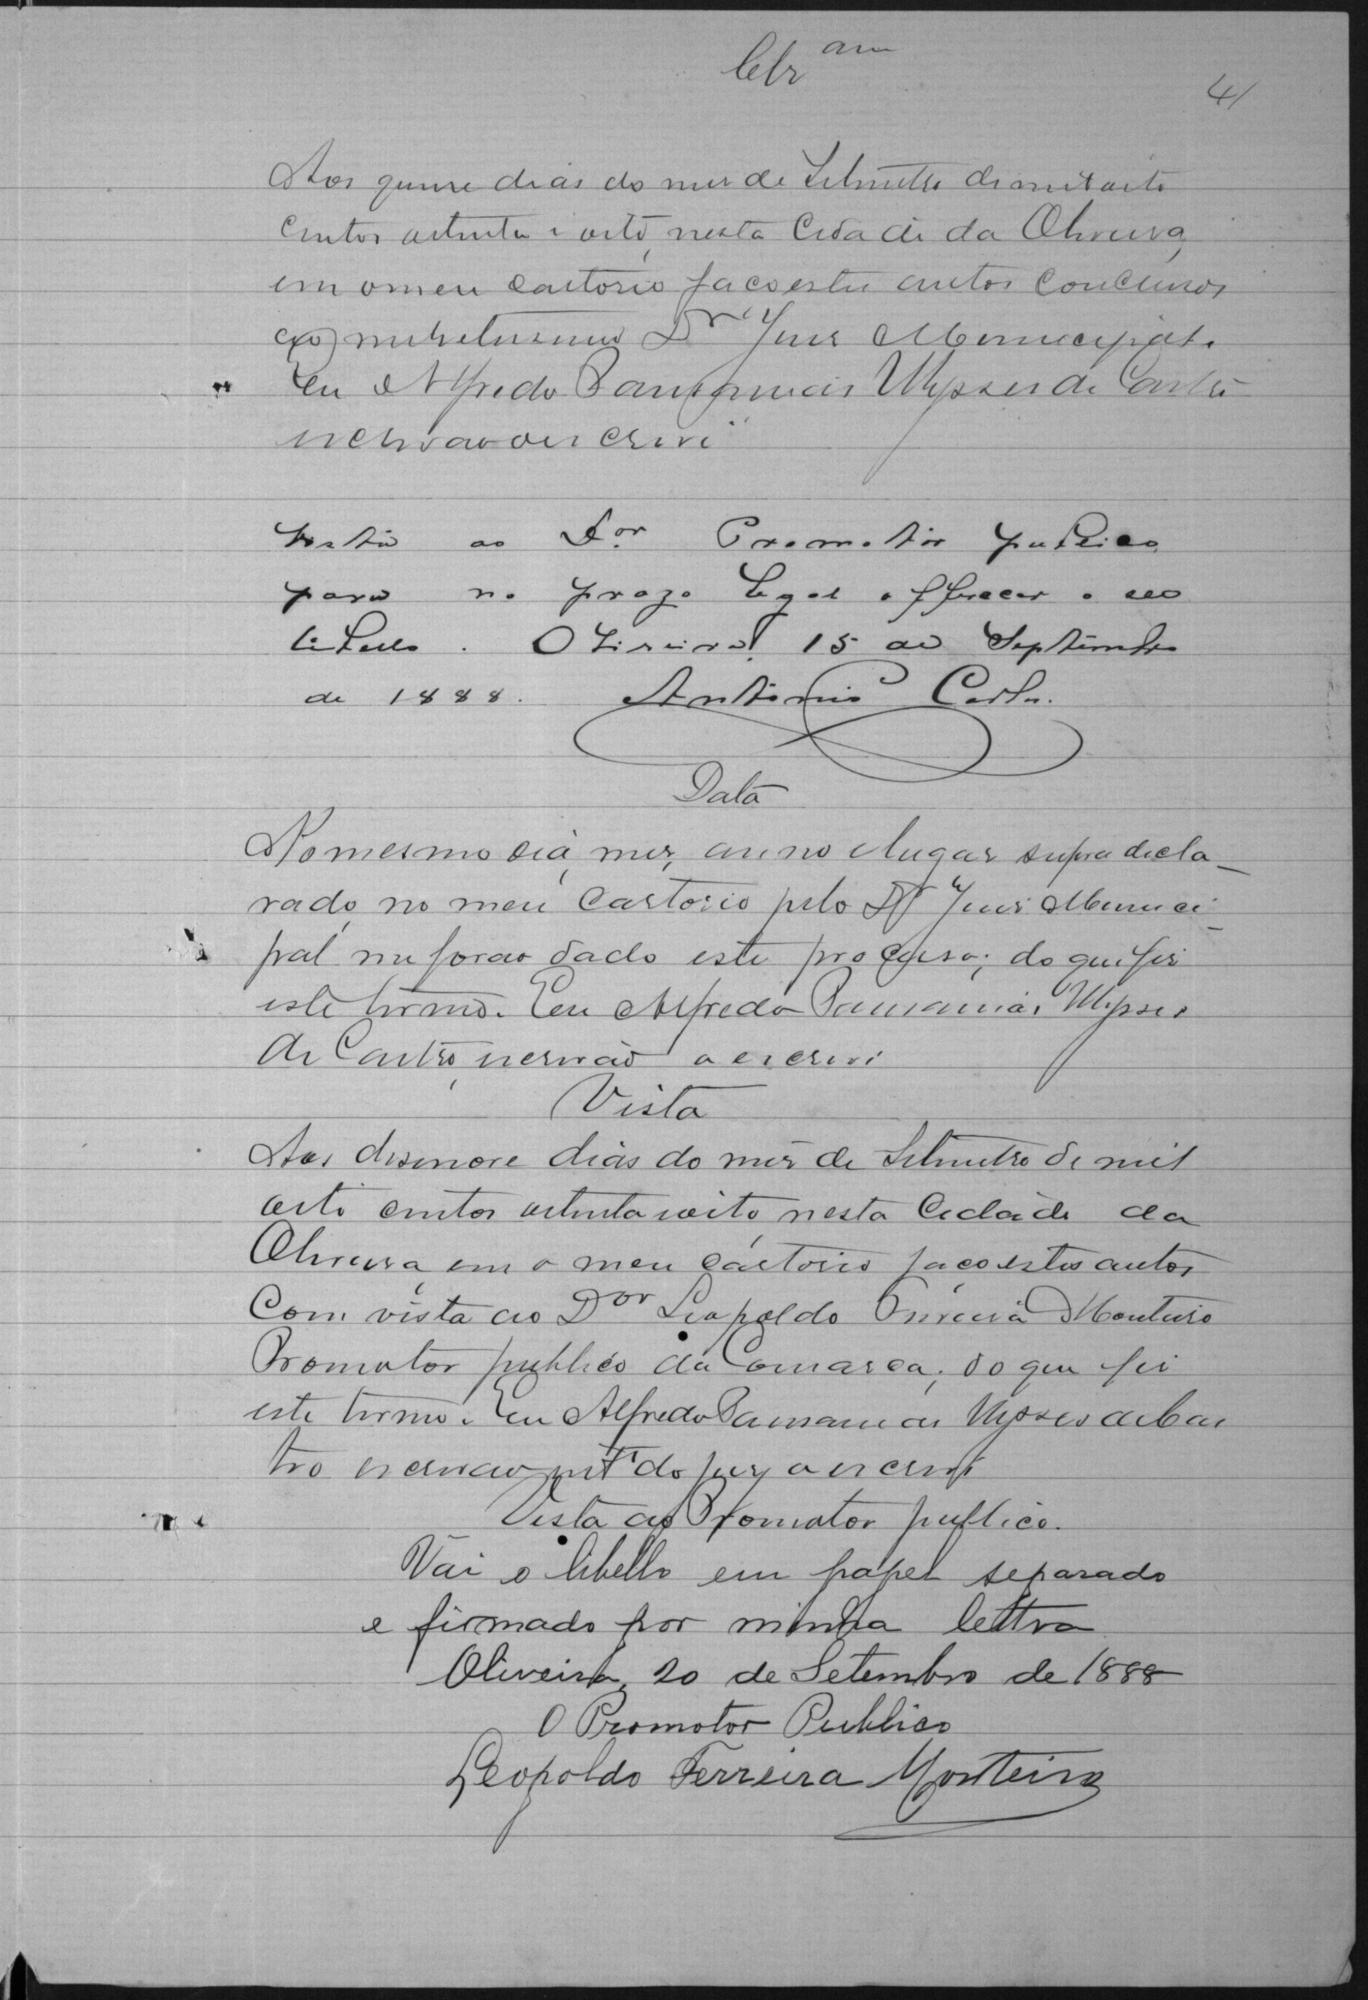 41
Aos quinse dias do mes de Setembro de mil oito
centos oitenta e oito, nesta Cidade da Oliveira,
em o meu cartorio faço estes autos conclusos
ao meretissimo Dr Juis Municipal.
Eu Alfredo Pausanias Ulysses de Castro
escrivão o escrevi
Vista ao Dor Promotor publico
para no prazo legal offerecer o seo
libello. Oliveira, 15 de Septembro
de 1888. Antonio
Data
No mesmo dia, mes, anno e lugar supra decla-
rado, no meu cartorio pelo Dr Juis Munici-
pal me forão dado este processo; do que fis
este termo. Eu Alfredo Pausanias Ulysses
de Castro, escrivão o escrevi
Vista
Aos desenove dias do mês de Setembro de mil
oito centos oitenta e oito, nesta Cidade da
Oliveira, em o meu cartorio faço estes autos
Com vista ao Dor Leopoldo Ferreira Monteiro
Promotor publico da Comarca; do que fis
este termo. Eu Alfredo Pausanias Ulysses de Cas
tro escrivão do jury o escrevi
Vista ao Promotor publico.
Vai o libello em papel separado
e firmado por minha lettra
Oliveira, 20 de Setembro de 1888
O Promotor Publico
Leopoldo Ferreira Monteiro